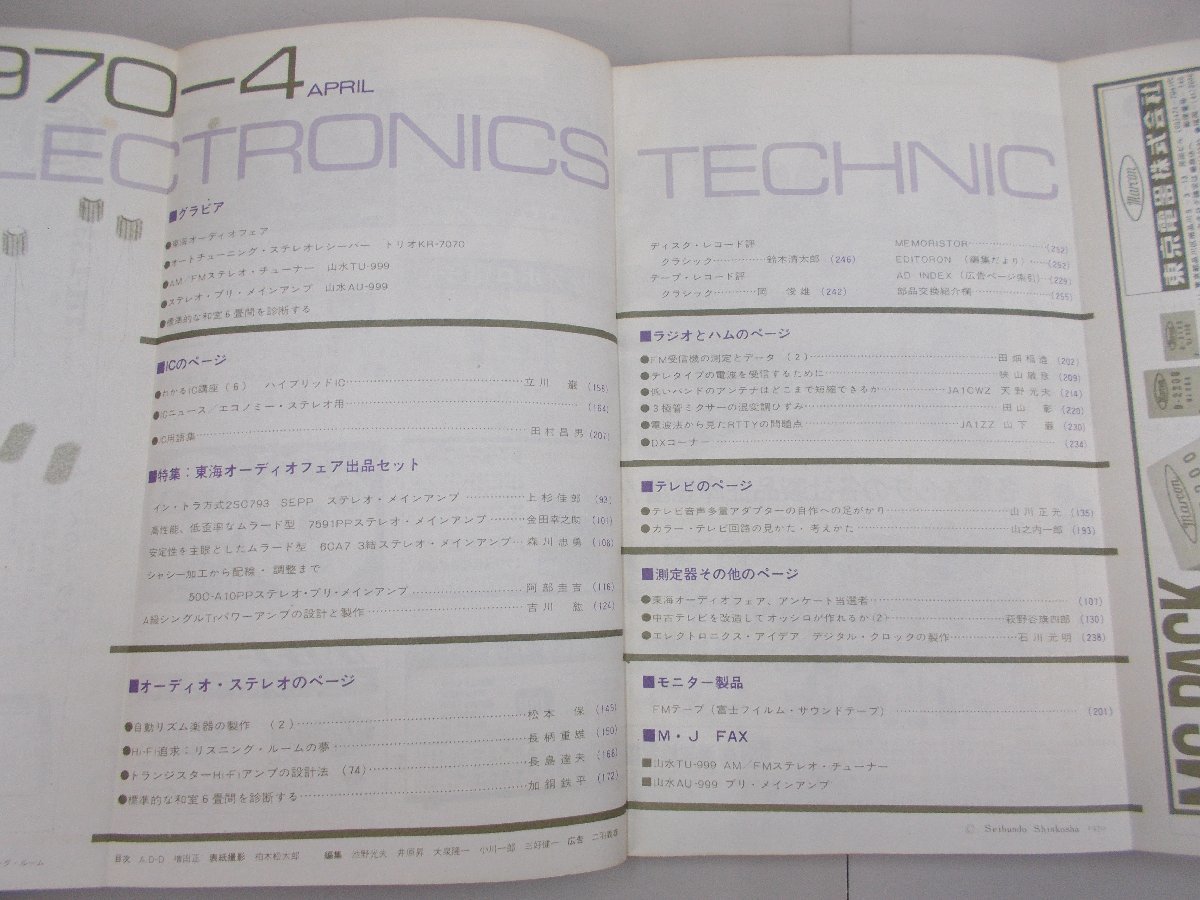 970-4 APRIL
LECTRONICS
TECHNIC
■グラビア
●東海オーディオフェア
●オートチューニング・ステレオレシーバー トリオKR-7070
●AM/FMステレオ・チューナー 山水TU-999
●ステレオ・プリ・メインアンプ 山水AU-999
●標準的な和室6畳間を診断する
■ICのページ
●わかるIC講座(6) ハイブリッドIC 立川 巌 (158)
●ICニュース/エコノミー・ステレオ用 (164)
●IC用語集 田村昌男 (207)
■特集:東海オーディオフェア出品セット
イン・トラ方式2SC793 SEPP ステレオ・メインアンプ 上杉佳郎 (93)
高性能、低歪率なムラード型 7591PPステレオ・メインアンプ 金田幸之助 (101)
安定性を主眼としたムラード型 6CA7 3結ステレオ・メインアンプ 森川忠勇 (108)
シャシー加工から配線・調整まで
50C-A10PPステレオ・プリ・メインアンプ 阿部圭吉 (116)
A級シングルTrパワーアンプの設計と製作 吉川 紘 (124)
■オーディオ・ステレオのページ
●自動リズム楽器の製作 (2) 松本 保 (145)
●Hi-Fi追求:リスニング・ルームの夢 長柄重雄 (150)
●トランジスターHi-Fiアンプの設計法 (74) 長島達夫 (168)
●標準的な和室6畳間を診断する 加銅鉄平 (172)
目次 A.D.D 増田正 表紙撮影 柏木松太郎 編集 池野光夫 井原昇 大泉隆一 小川一郎 三好健一 広告
ディスク・レコード評
クラシック 鈴木清太郎 (246)
テープ・レコード評
クラシック 岡 俊雄 (242)
MEMORISTOR (252)
EDITORON (編集だより) (252)
AD INDEX (広告ページ索引) (229)
部品交換紹介欄 (255)
■ラジオとハムのページ
●FM受信機の測定とデータ (2) 田畑福造 (202)
●テレタイプの電波を受信するために 狭山融彦 (209)
●低いバンドのアンテナはどこまで短縮できるか JA1CWZ 天野光夫 (214)
●3極管ミクサーの混変調ひずみ 田山 彰 (220)
●電波法から見たRTTYの問題点 JA1ZZ 山下 巌 (230)
●DXコーナー (234)
■テレビのページ
●テレビ音声多重アダプターの自作への足がかり 山川正光 (135)
●カラー・テレビ回路の見かた・考えかた 山之内一郎 (193)
■測定器その他のページ
●東海オーディオフェア、アンケート当選者 (107)
●中古テレビを改造してオッシロが作れるか(2) 萩野谷鎮四郎 (130)
●エレクトロニクス・アイデア デジタル・クロックの製作 石川元明 (238)
■モニター製品
FMテープ(富士フイルム・サウンドテープ) (201)
■M・J FAX
■山水TU-999 AM/FMステレオ・チューナー
■山水AU-999 プリ・メインアンプ
© Seibundo Shinkosha 1970
Marcon
東京電器株式会社
MC PACK